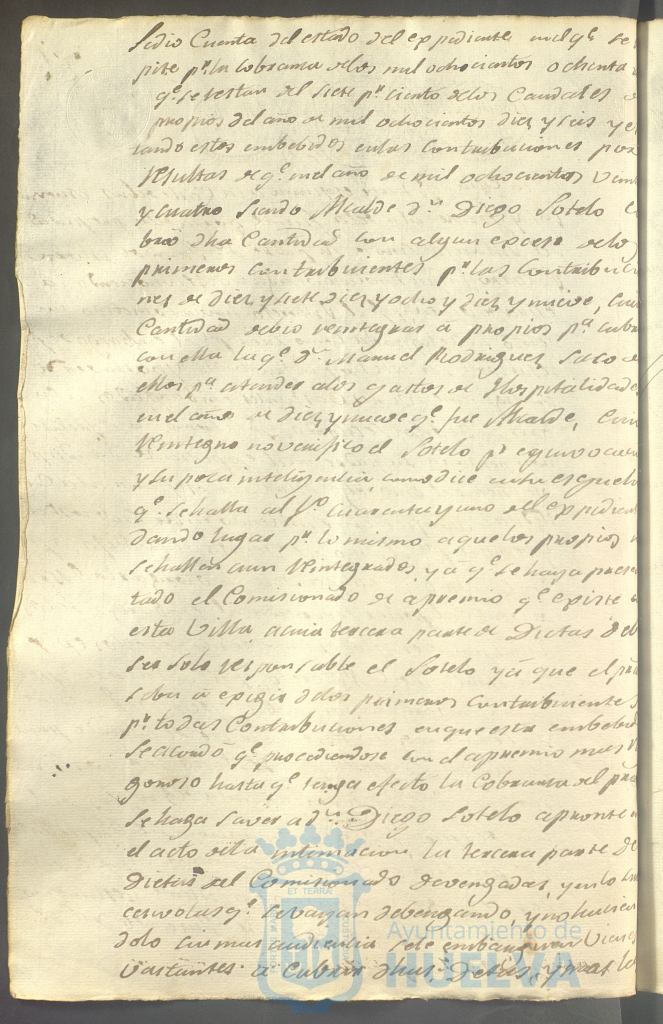 Sedio Cuenta del estado del expediente en el qe. se
pite pr. la cobranza de los mil ochocientos ochenta
qe. se restan del siete pr. ciento de los Caudales
propios del año de mil ochocientos diez y seis y es
tando estos embebidos en las Contribuciones por
resultas de qe. en el año de mil ochocientos vein
y cuatro siendo Alcalde dn. Diego Sotelo co
bro dha Cantidad con algun exceso de los
primeros contribuientes pr. las Contribucio
nes de diez y siete diez y ocho y diez y nueve, cuia
Cantidad devio reintegrar a propios pa. cubrir
con ella la qe. dn. Manuel Rodriguez saco de
ellos pa. atender a los gastos de Hospitalidades
en el año de diez y nueve qe. fue Alcalde, cuio
reintegro no verifico el Sotelo pr. equivoca
y su poca inteligencia como dice en su
qe. se halla al fo. cuarenta y uno del expedien
dando lugar pr. lo mismo a que los propios
se hallen aun reintegrados ya qe. se haya presen
tado el Comisionado de apremio qe. existe
esta Villa a cuia tercera parte de Dietas deb
ser solo responsable el Sotelo ya que el
sobre a exigir de los primeros contribuientes
pr. todas Contribuciones en que esta embebido
se acordó qe. procediendose con el apremio mas ri
goroso hasta qe. tenga efecto la Cobranza del
se haga saver a dn. Diego Sotelo apronte
el acto de la intimacion la tercera parte de
Dietas del Comisionado devengadas, y en lo
cesivo las qe. se vayan debengando, y no hacien
dolo sin mas audiencia se le embarguen Vienes
vastantes a cubrir dhas. Dietas, y mas
ET TERRÆ
Ayuntamiento de
HUELVA